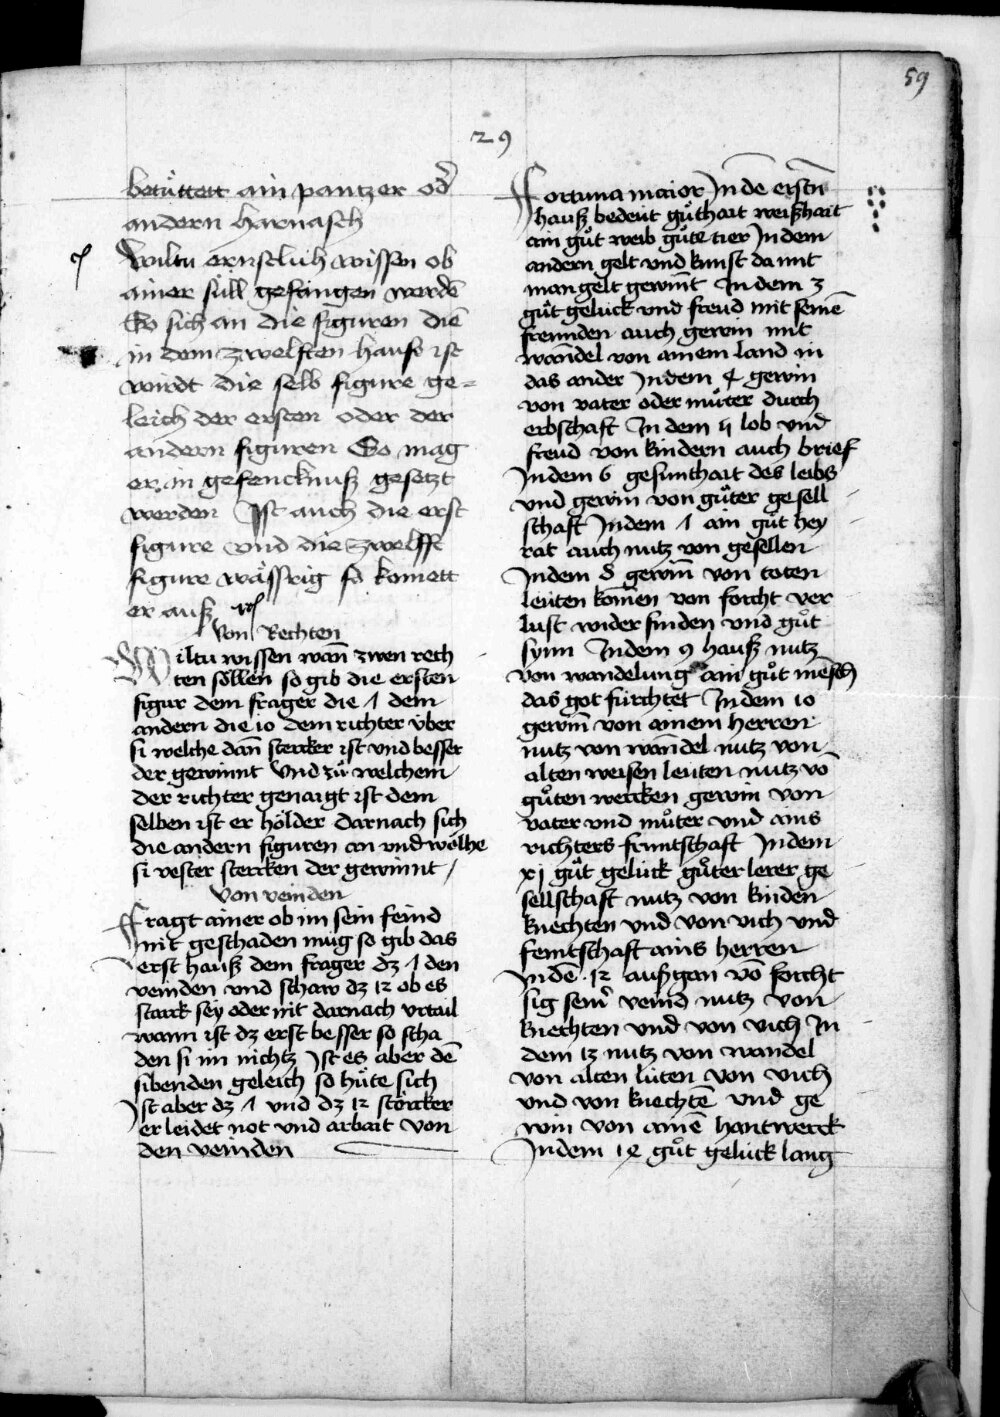 59
29
betüttett ain pantzer od̉
andern harnasch
Wiltu ernstlich wissen ob
ainer süll gefangen werdē
So sich an die figuren die
in dem zwelften hauß ist
wirdt die selb figure ge=
leich der ersten oder der
andern figuren So mag
er in gefencknuß gesetzt
werden Ist auch die erst
figure vnd die zwelffte
figure wässrig so komett
er auß
Von Rechten
Wiltu wissen wan̄ zwen rech
ten söllen so gib die ersten
figur dem frager die ʌ dem
andern die 10 dem richter vber
si welche dan̄ stercker ist vnd besser
der gewinnt Vnd zů welchem
der richter genaigt ist dem
selben ist er hölder darnach sich
die andern figuren an vnd wölhe
si vester stercken der gewinnt /
Von veinden
Fragt ainer ob im sein feind
mit geschaden mug so gib das
erst hauß dem frager dz ʌ den
veinden vnd schaw dz 12 ob es
starck sey oder nit darnach vrtail
wann ist dz erst besser so scha
den si im nichtz Ist es aber dē
sibenden geleich so hüte sich
Ist aber dz ʌ vnd dz 12 störcker
er leidet not vnd arbait von
den veinden
Fortuna maior In de ersten̄
hauß bedeut gůthait weißhait
ain gůt weib gůte tier In dem
andern gelt vnd kunst da mit
man gelt gewint̄ In dem 3
gůt geluck vnd freud mit seinē
freunden auch gewin mit
wandel von ainem land in
das ander In dem 4 gewin
von vater oder můter durch
erbschaft In dem 5 lob vnd
freud von kindern auch brief
In dem 6 gesunthait des leibs
vnd gewin von gůter gesell
schaft In dem ʌ ain gůt hey
rat auch nutz von gesellen
In dem 8 gewin̄ von toten
leuten komen̄ von forcht ver
lust wider finden vnd gůt
synn In dem 9 hauß nutz
von wandelung ain gůt mēsch
das got fürchtet In dem 10
gewin̄ von ainem herren
nutz von wandel nutz von
alten weisen leuten nutz vō
gůten wercken gewin von
vater vnd můter vnd ains
richters fruntschaft In dem
xj gůt geluck gůter lerer ge
sellschaft nutz von kinden
knechten vnd von vich vnd
feintschaft ains herren
In dē 12 außgan vō forcht
sig sein̉ veind nutz von
knechten vnd von vich In
dem 13 nutz von wandel
von alten lüten von vich
vnd von knechtē vnd ge
win von ainē hantwerck
In dem 14 gůt geluck lang